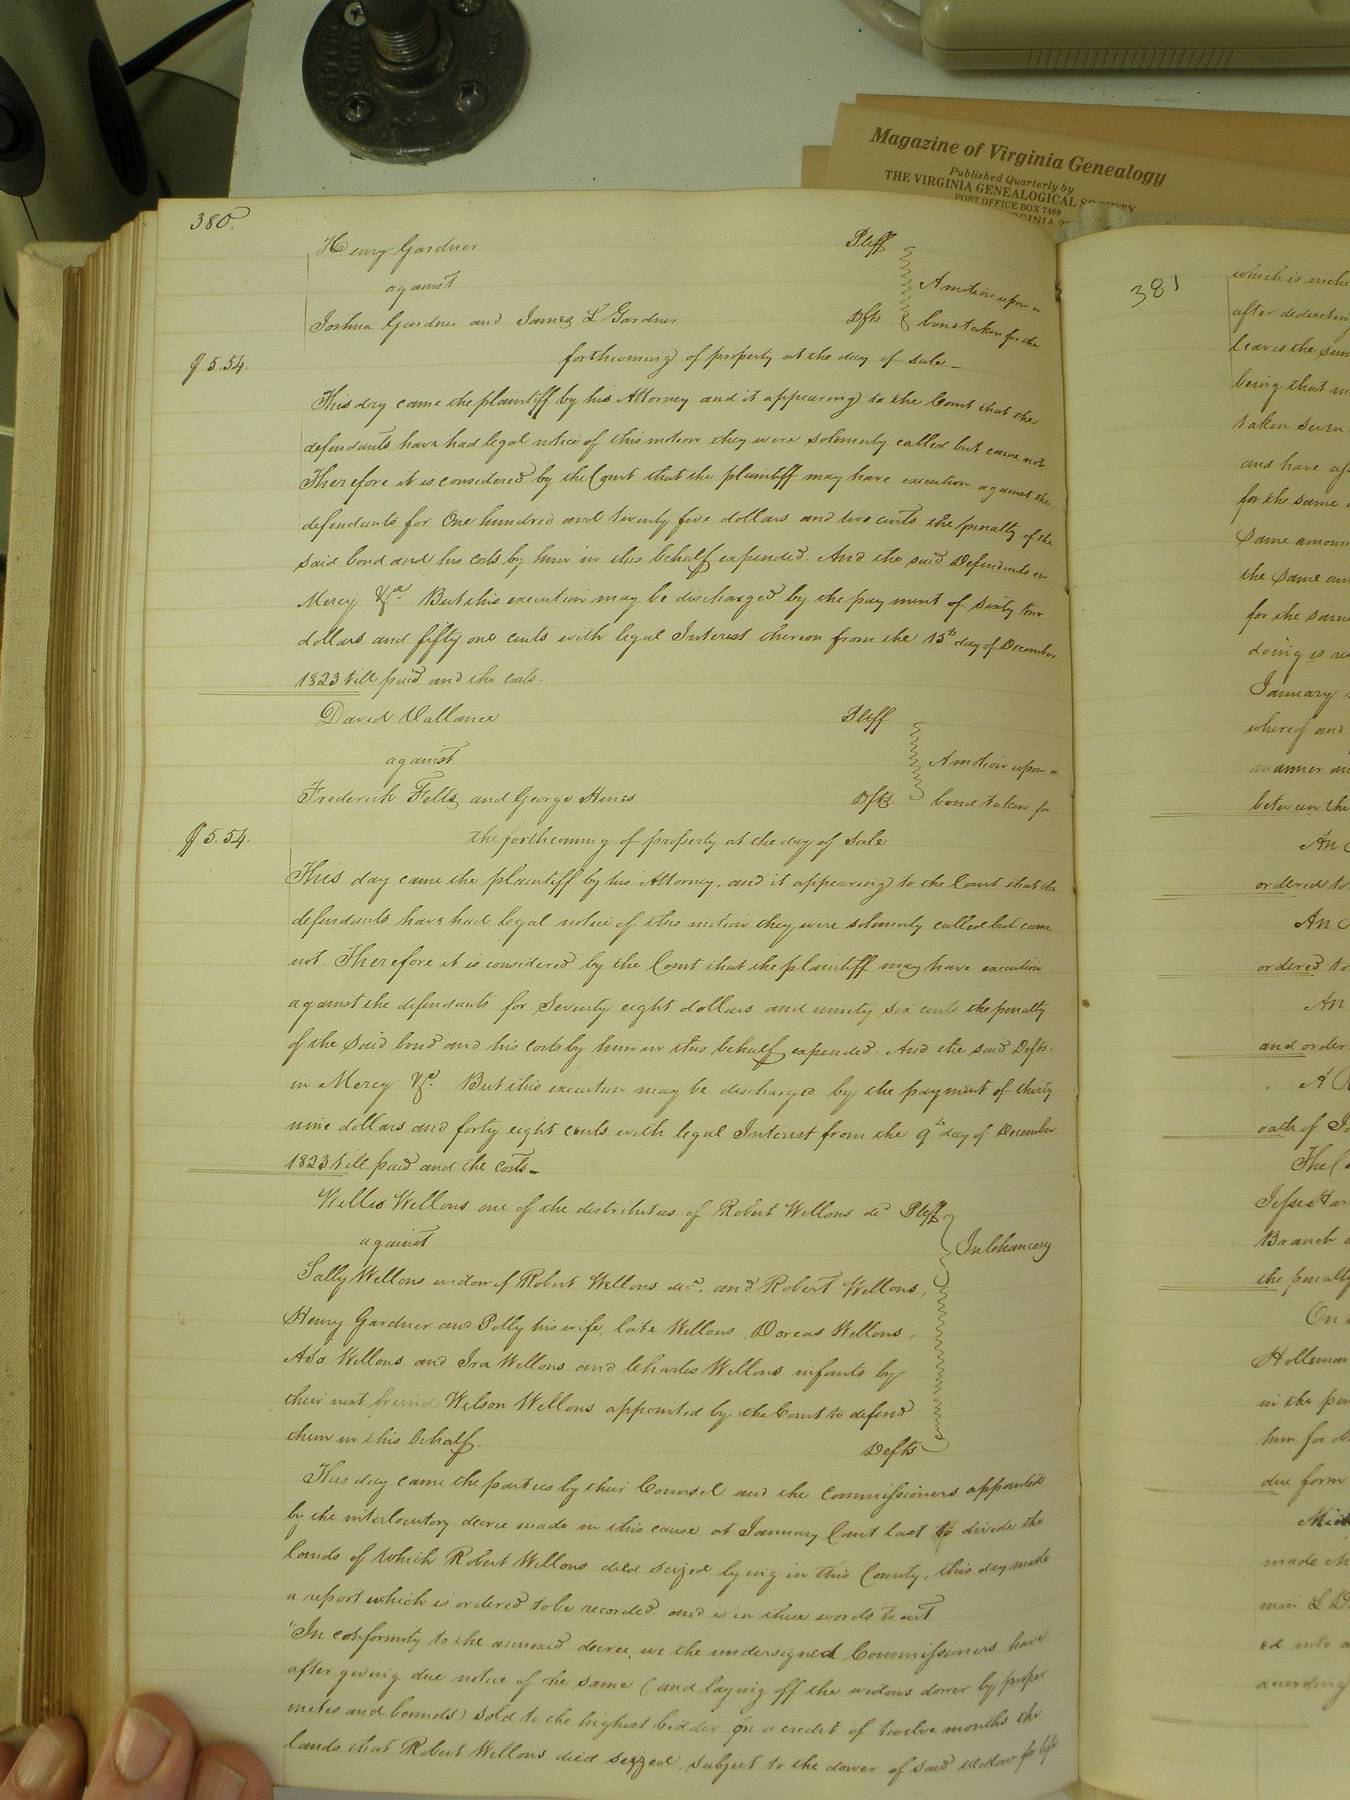 Magazine of Virginia Genealogy
Published Quarterly by
THE VIRGINIA GENEALOGICAL SOCIETY
POST OFFICE BOX 7469
380.
Henry Gardner Plff
against A motion upon a
Joshua Gardner and James L Gardner Dfts bond taken for the
$5.54. forthcoming of property at the day of sale _
This day came the plaintiff by his Attorney and it appearing to the Court that the
defendants have had legal notice of this motion they were solemnly called but came not
Therefore it is considered by the Court that the plaintiff may have execution against the
defendants for One hundred and twenty five dollars and two cents the penalty of the
said bond and his costs by him in this behalf expended. And the said Defendants in
Mercy &c. But this execution may be discharged by the payment of Sixty two
dollars and fifty one cents with legal Interest thereon from the 15th day of December
1823 till paid and the costs.
David Vallance Plff
against A motion upon a
Frederick Fells and George Hines Dfts. bond taken for
$5.54. the forthcoming of property at the day of sale
This day came the plaintiff by his Attorney, and it appearing to the Court that the
defendants have had legal notice of this motion they were solemnly called but came
not. Therefore it is considered by the Court that the plaintiff may have execution
against the defendants for Seventy eight dollars and ninety six cents the penalty
of the said bond and his costs by him in this behalf expended. And the said Defts.
in Mercy &c. But this execution may be discharged by the payment of thirty
nine dollars and forty eight cents with legal Interest from the 9th day of December
1823 till paid and the costs _
Willis Wellons one of the distributees of Robert Wellons decd Plff
against In Chancery
Sally Wellons widow of Robert Wellons decd. and Robert Wellons,
Henry Gardner and Polly his wife, late Wellons, Dorcas Wellons,
Asa Wellons and Ira Wellons and Charles Wellons infants by
their next friend Wilson Wellons appointed by the Court to defend
them in this behalf. Defts
This day came the parties by their Counsel and the Commissioners appointed
by the interlocutory decree made in this cause at January Court last to divide the
lands of which Robert Wellons died seized lying in this County, this day made
a report which is ordered to be recorded and is in these words to wit
"In conformity to the annexed decree, we the undersigned Commissioners have
after giving due notice of the same (and laying off the widows dower by proper
metes and bounds) sold to the highest bidder on a credit of twelve months the
lands that Robert Wellons died seized, subject to the dower of said widow for life
381
which is
after deducting
leaves the sum
being that
taken seven
and have
for the same
Same amount
the same
for the same
doing is
January
whereof and
manner
between the
An
ordered to
An
ordered to
An
and order
A
oath of
The
Jesse
Branch
the penalty
On
Holleman
in the
him for
due form
made
ed into
according